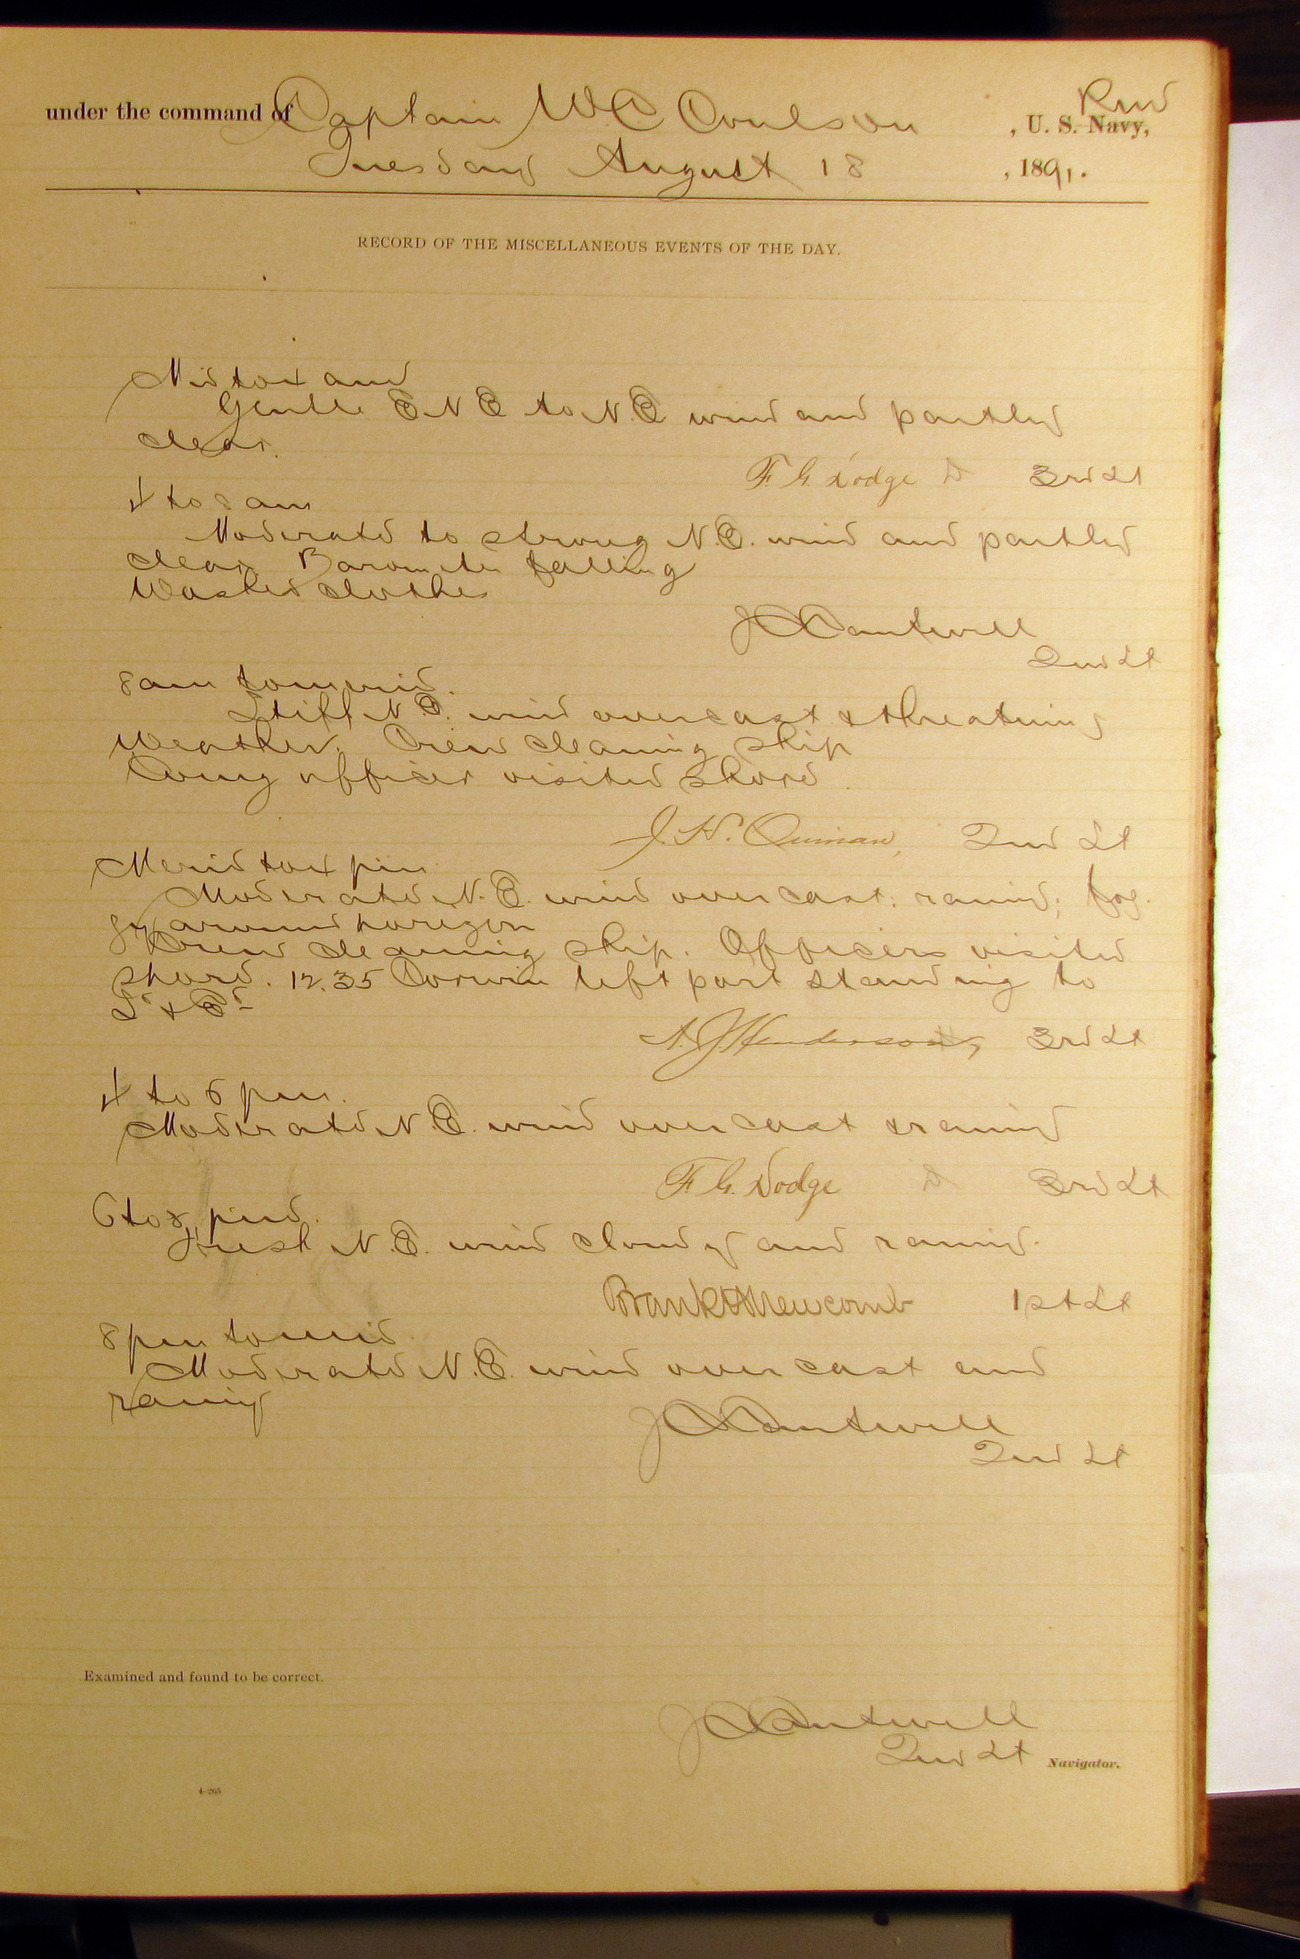 under the command of Captain W C Coulson, U. S. Navy, RM
Tuesday August 18, 1891.
RECORD OF THE MISCELLANEOUS EVENTS OF THE DAY.
Mid to 4 am
Gentle E N E to N. E wind and partly
clear.
F. G. Dodge D 3rd Lt
4 to 8 am
Moderate to strong N. E. wind and partly
clear Barometer falling
Washed clothes
JCCantwell
2nd Lt
8 am to merid.
Stiff N E. wind overcast & threatening
weather. Crew cleaning ship
Comg officer visited shore.
J. H. Quinan, 2nd Lt
Merid to 4 pm
Moderate N. E. wind overcast, rainy, fog-
gy around horizon
Crew cleaning ship. Officers visited
shore. 12.35 Corwin left port standing to
Sd & Ed
A. J Henderson, 3rd Lt
4 to 6 pm.
Moderate N. E. wind overcast & rainy
F. G. Dodge D 3rd Lt
6 to 8 pm.
Fresh N. E. wind cloudy and rainy.
Frank H Newcomb 1st Lt
8 pm to mid.
Moderate N. E. wind overcast and
rainy
JCCantwell
2nd Lt
Examined and found to be correct.
JCCantwell
2nd Lt Navigator.
4-265